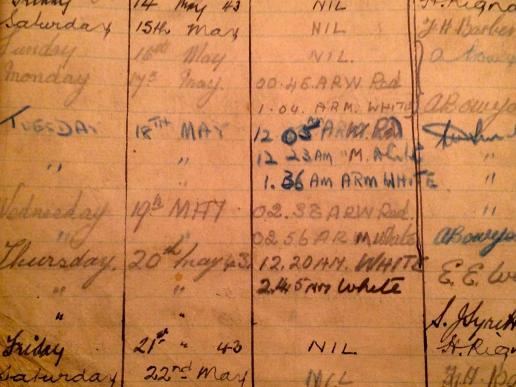 14 May 43 NIL H. Rigna
Saturday 15th May NIL F.H. Barber
Sunday 16th May NIL. A Bowy
Monday 17th May. 00.46. ARW Red
1.04. ARM. WHITE ABowye
TUESDAY 18TH MAY 12 05 AM ARW. RD
" " 12 23AM "M. White "
" " 1.36 AM ARM WHITE "
Wednesday 19th MAY 02.38 ARW Red. "
" " 02.56 AR M White ABowye
Thursday. 20th May 43. 12.20 AM. WHITE E.E. W
" " 2.45 AM White
" " S. J
Friday 21st " 43 NIL. H. Rign
Saturday 22nd May NIL F.H. Ba